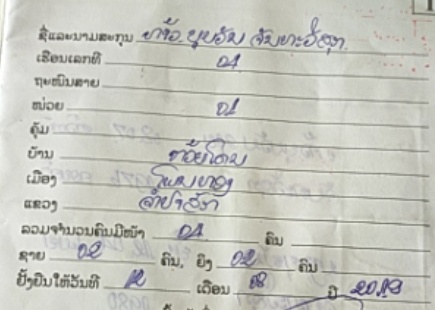 ຊື່ແລະນາມສະກຸນ
ເຮືອນເລກທີ 04
ຖະໜົນສາຍ
ໜ່ວຍ 01
ຄຸ້ມ
ບ້ານ ຫ້ວຍໂດນ
ເມືອງ ໂພນທອງ
ແຂວງ ຈຳປາສັກ
ລວມຈຳນວນຄົນມີໜ້າ 04 ຄົນ
ຊາຍ 02 ຄົນ, ຍິງ 02 ຄົນ
ຢັ້ງຢືນໃຫ້ວັນທີ 12 ເດືອນ 08 ປີ